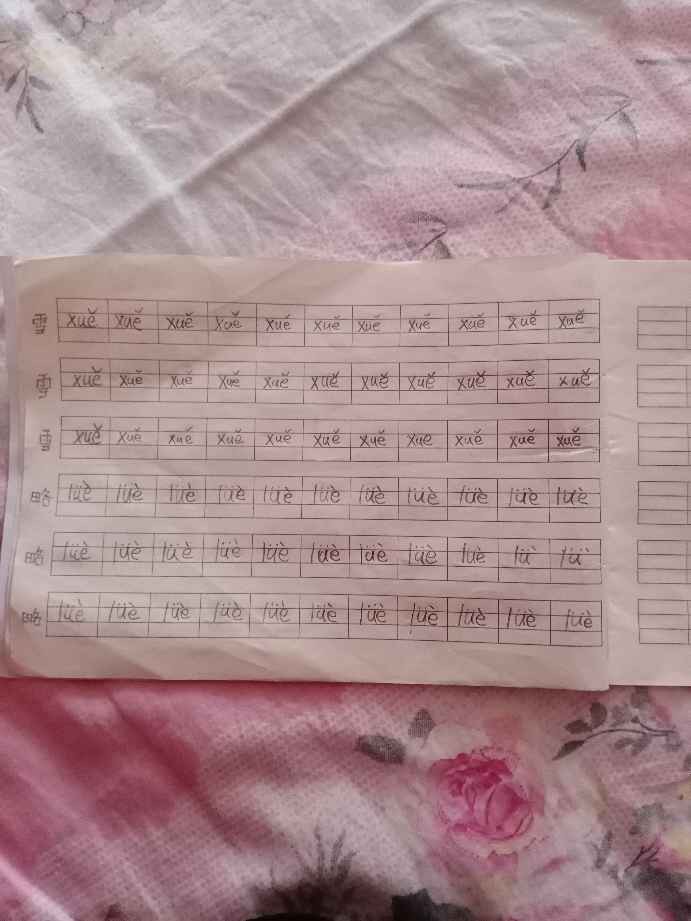 雪 xuě xuě xuě xuě xuě xuě xuě xuě xuě xuě xuě
雪 xuě xuě xuě xuě xuě xuě xuě xuě xuě xuě xuě
雪 xuě xuě xuě xuě xuě xuě xuě xue xuě xuě xuě
略 lüè lüè lüè lüè lüè lüè lüè lüè lüè lüè lüè
略 lüè lüè lüè lüè lüè lüè lüè lüè luè lü lü
略 lüè lüè lüè lüè lüè lüè lüè lüè lüè lüè lüè